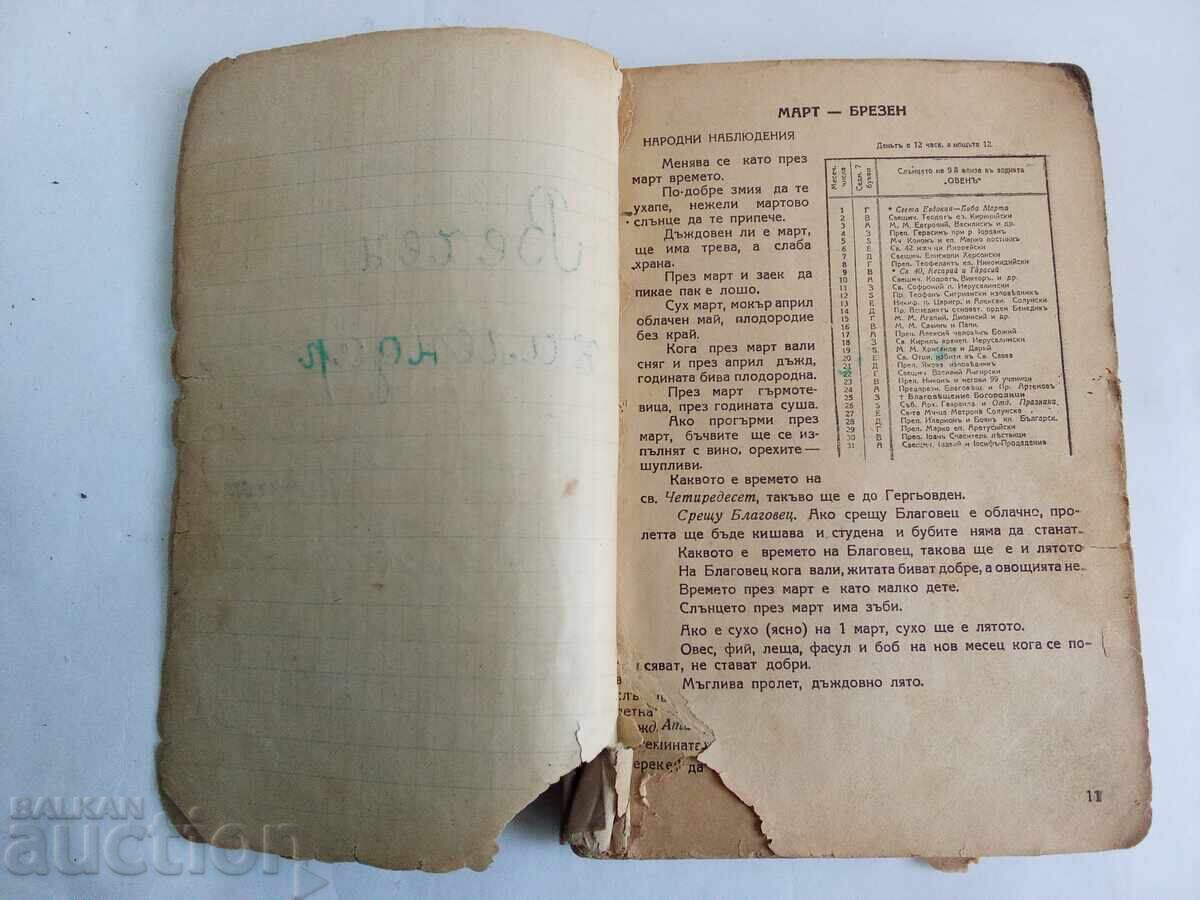 Вечен
календар
МАРТ — БРЕЗЕН
НАРОДНИ НАБЛЮДЕНИЯ
Менява се като през
март времето.
По-добре змия да те
ухапе, нежели мартово
слънце да те припече.
Дъждовен ли е март,
ще има трева, а слаба
храна.
През март и заек да
пикае пак е лошо.
Сух март, мокър април
облачен май, плодородие
без край.
Кога през март вали
сняг и през април дъжд,
годината бива плодородна.
През март гърмоте-
вица, през годината суша.
Ако прогърми през
март, бъчвите ще се из-
пълнят с вино, орехите —
шупливи.
Каквото е времето на
св. Четиредесет, такъво ще е до Гергьовден.
Срещу Благовец. Ако срещу Благовец е облачно, про-
летта ще бъде кишава и студена и бубите няма да станат.
Каквото е времето на Благовец, такова ще е и лятото
На Благовец кога вали, житата биват добре, а овощията не.
Времето през март е като малко дете.
Слънцето през март има зъби.
Ако е сухо (ясно) на 1 март, сухо ще е лятото.
Овес, фий, леща, фасул и боб на нов месец кога се по-
сяват, не стават добри.
Мъглива пролет, дъждовно лято.
Деньтъ е 12 часа, а нощьта 12.
Месеч. числа
Седм. 7 букви
Слънцето на 9 й влиза въ зодията
„ОВЕНЪ"
1 Г * Света Евдокия—Баба Марта
2 В Свещмч. Теодотъ еп. Киринийски
3 А М. М. Евтропий, Василискъ и др.
4 З Преп. Герасимъ при р. Iорданъ
5 Ѕ Мч. Кононъ и еп. Марко постникъ
6 Е Св. 42 мъч-ци Аморейски
7 Д Свещмч. Епископи Херсонски
8 Г Преп. Теофилактъ еп. Никомидийски
9 В * Св. 40, Кесарий и Тарасий
10 А Свещмч. Кодратъ, Викторъ. и др.
11 З Св. Софроний п. Иерусалимски
12 Ѕ Пр. Теофанъ Сигриански изповѣдникъ
13 Е Никиф. п. Цариgr. и Александ. Солунски
14 Д Пр. Бенедиктъ основат. орденъ Бенедик.
15 Г М. М. Агапий, Дионисий и др.
16 В М. М. Савинъ и Папи.
17 А Преп. Алексий человѣкъ Божий
18 З Св. Кирилъ архиеп. Иерусалимски
19 Ѕ М. М. Хрисантъ и Дарий
20 Е Св. Отци, избити въ Св. Савва
21 Д Преп. Яковъ изповѣдникъ
22 Г Свещмч. Василий Анкирски
23 В Преп. Никонъ и негови 99 ученици
24 А Предпразн. Благовещ. и Пр. Артемонъ
25 З † Благовѣщение Богородици
26 Ѕ Съб. Арх. Гавраила и Отд. Празника.
27 Е Св-та Мч-ца Матрона Солунска
28 Д Преп. Иларионъ и Боянъ кн. Българск.
29 Г Преп. Марко еп. Аретусийски
30 В Преп. Iоанъ Списатель лѣствици
31 А Свещмч. Ипатий и
етна
Ата
екината
ереке да
11
BALKAN
auction